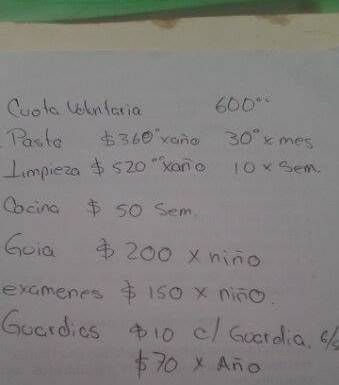 Cuota Voluntaria 600⁰⁰
Pasto $360⁰ xaño 30⁰ x mes
Limpieza $520⁰⁰ xaño 10 x Sem.
Cocina $ 50 Sem.
Guia $ 200 x niño
examenes $ 150 x niño.
Guardias $10 c/ Guardia.
$70 x Año